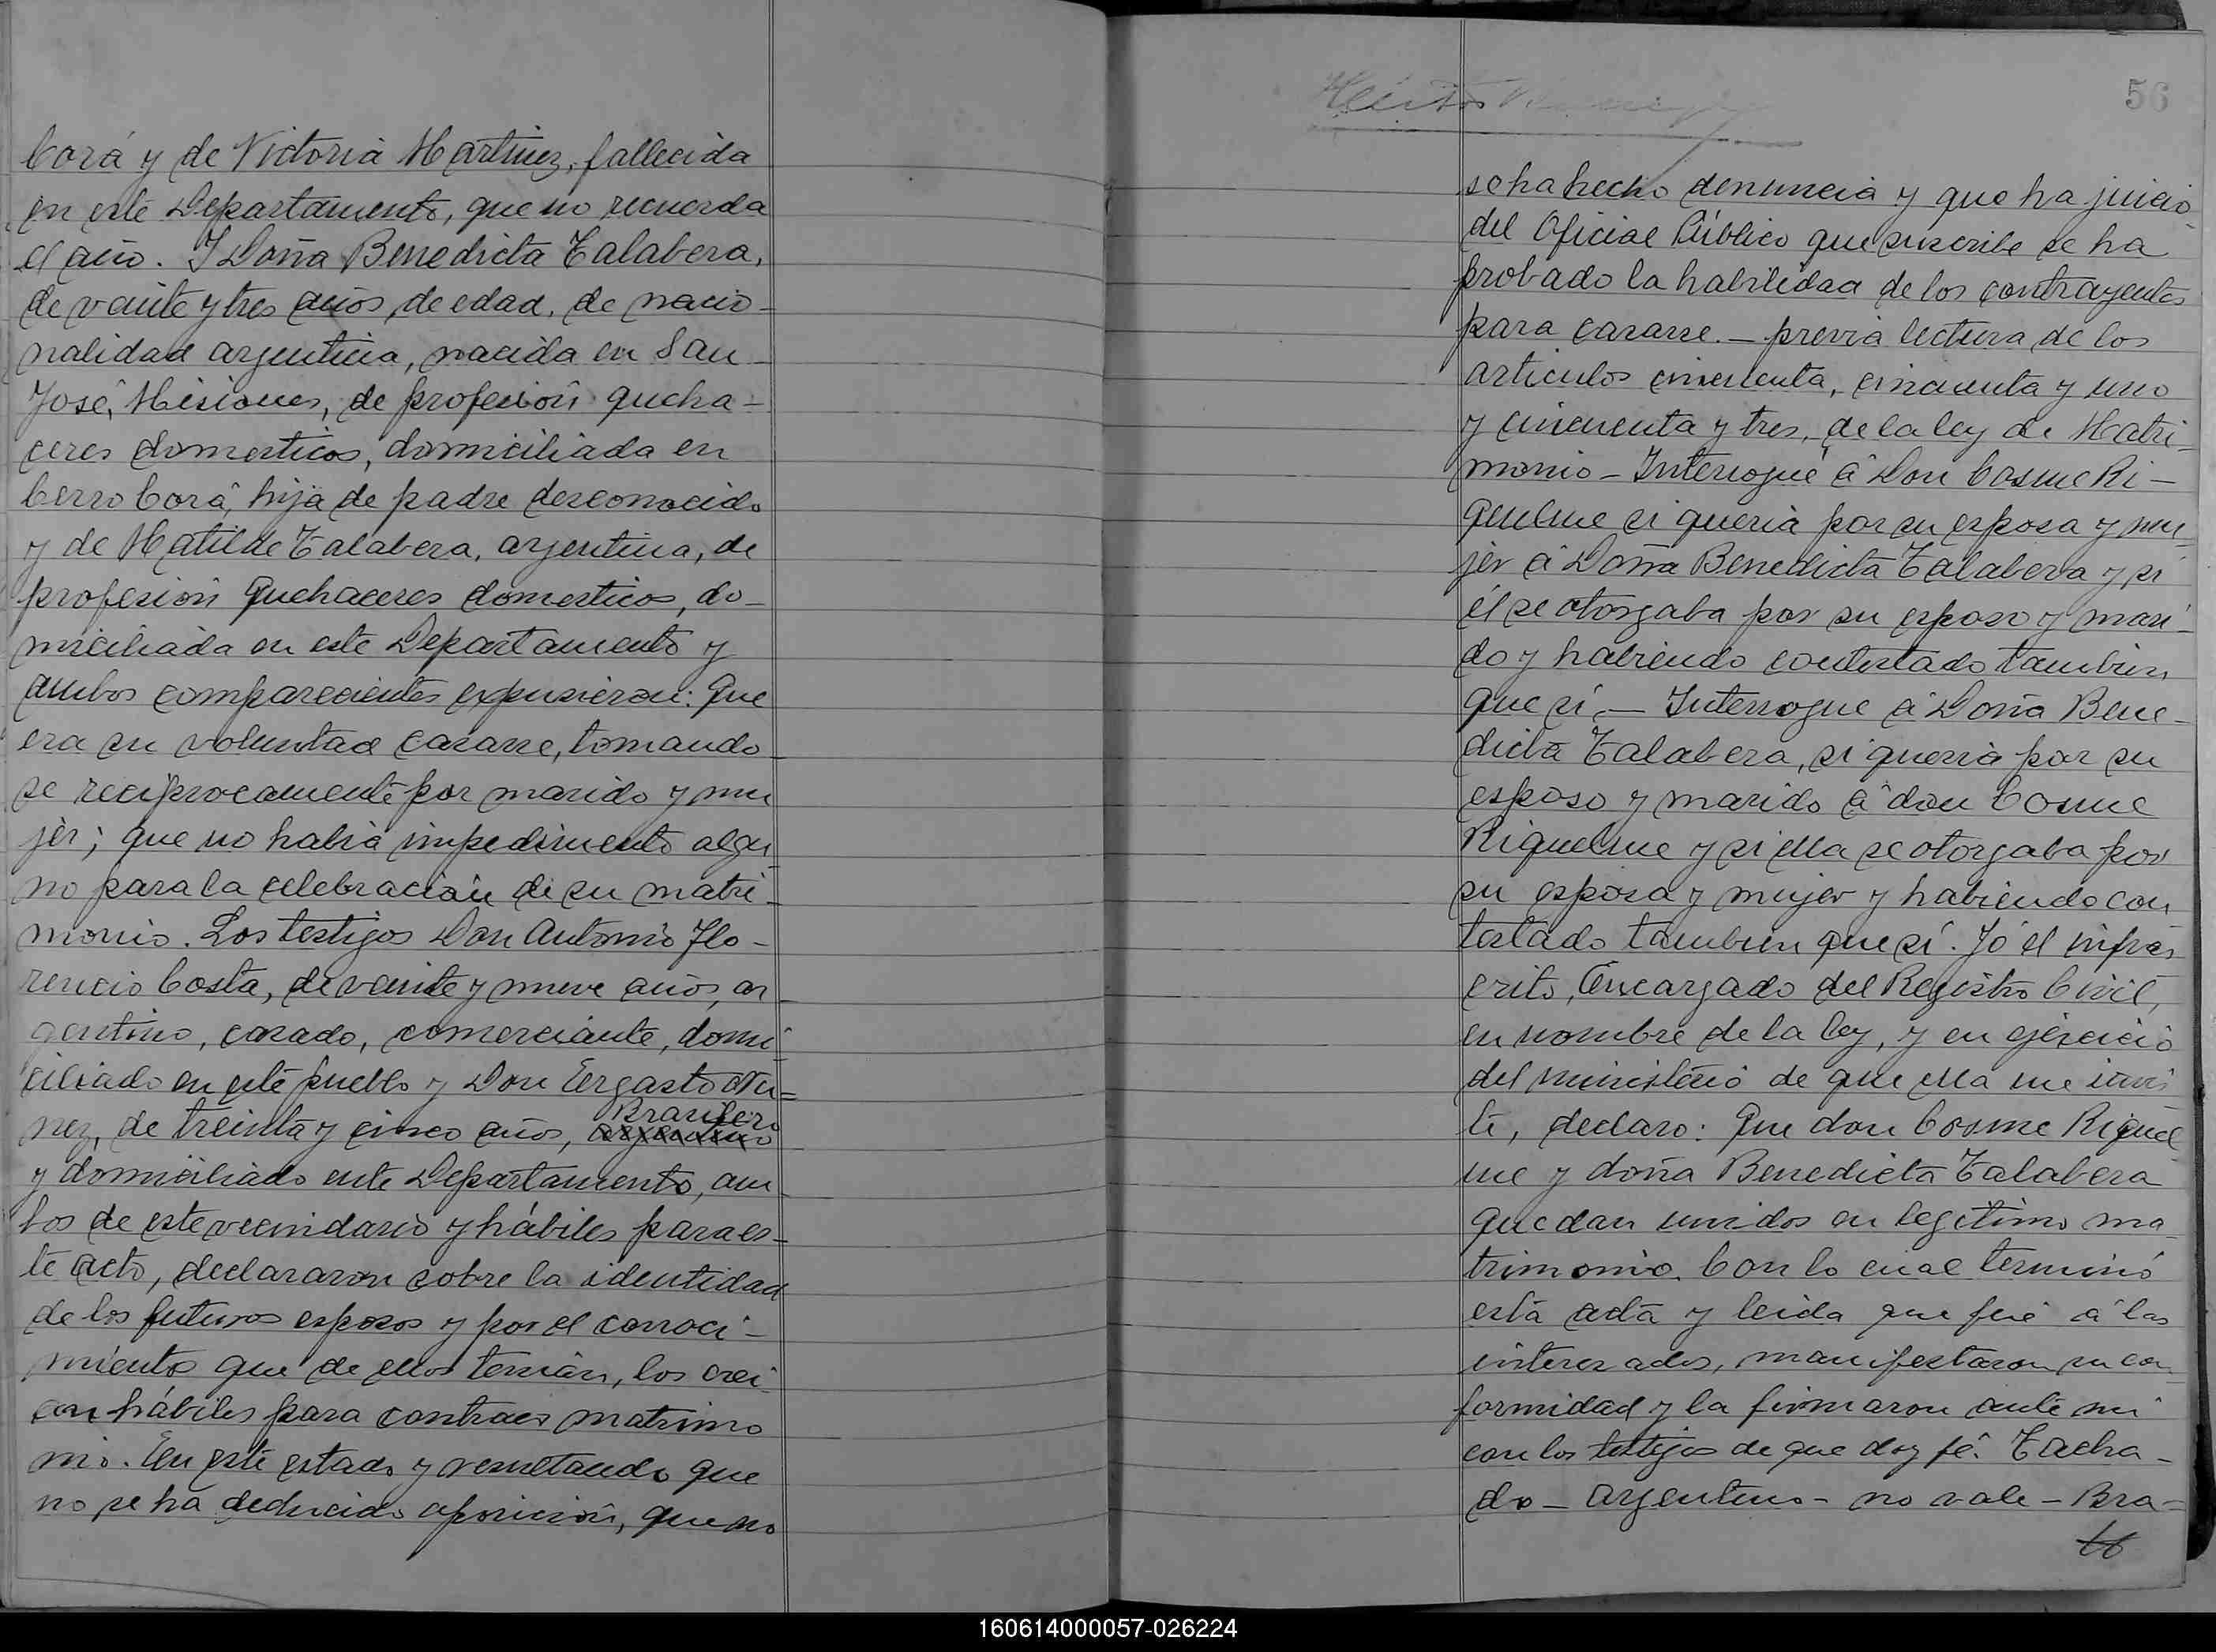 Corá y de Victoria Martinez, fallecida
en este Departamento, que no recuerda
el año. Y Doña Benedicta Talabera,
de vainte y tres años, de edad, de nacio-
nalidad argentina, nacida en San
José, Misiones, de profesión queha-
ceres domesticos, domiciliada en
Cerro Corá, hija de padre desconocido
y de Matilde Talabera, argentina, de
profesión quehaceres domesticos, do-
miciliada en este Departamento y
ambos comparecientes expusieron: que
era su voluntad casarse, tomando
se reciprocamente por marido y mu
jer; que no había impedimento algu
no para la celebración de su matri-
monio. Los testigos Don Antonio Flo-
rencio Costa, de vainte y nueve años, ar
gentino, casado, comerciante, domi
ciliado en este pueblo y Don Ergasto Nu=
Brasilero
nez, de treinta y cinco años, argentino
y domiciliado este Departamento, am
bos de este vecindario y hábiles para es-
te acto, declararon sobre la identidad
de los futuros esposos y por el conoci-
miento que de ellos tenian, los crei
an hábiles para contraer matrimo
nio. En este estado y resultando que
no se ha deducido oposición, que no
56
se ha hecho denuncia y que ha juicio
del Oficial Público que suscribe se ha
probado la habilidad de los contrayentes
para casarse.- previa lectura de los
articulos cincuenta, cincuenta y uno
y cincuenta y tres, de la ley de Matri-
monio - Interrogué á Don Cosme Ri-
quelme si queria por su esposa y mu-
jer á Doña Benedicta Talabera y si
él se otorgaba por su esposo y mari-
do y habiendo contestado tambien
que sí.- Interrogue á Doña Bene-
dicta Talabera, si queria por su
esposo y marido á don Cosme
Riquelme y si ella se otorgaba por
su esposa y mujer y habiendo con
testado tambien que sí. Yo el infras
crito, Encargado del Registro Civil,
en nombre de la ley, y en ejercicio
del ministerio de que ella me invis
te, declaro: Que don Cosme Riquel
me y doña Benedicta Talabera
quedan unidos en legitimo ma
trimonio. Con lo cual terminó
esta acta y leida que fué á los
interesados, manifestaron su con
formidad y la firmaron ante mi
con los testigos de que doy fé. Tacha-
do - argentino - no vale - Bra-
160614000057-026224